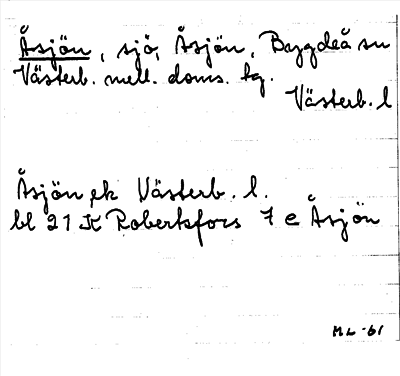 Åsjön, sjö, Åsjön, Bygdeå sn
Västerb. mell. doms. tg.
Västerb. l
Åsjön, ek Västerb. l.
bl 21 K Robertsfors 7 e Åsjön
ML -61